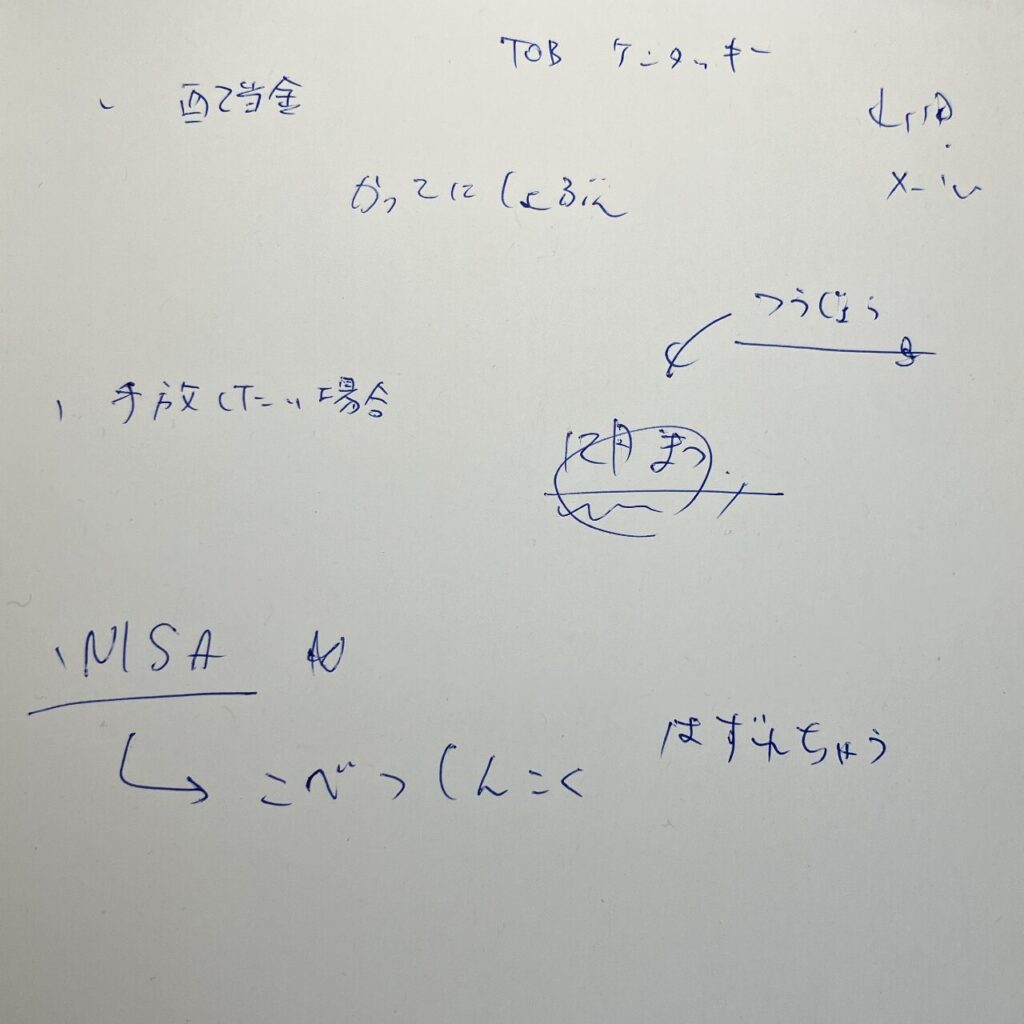 TOB ケンタッキー
、 配当金
メール
かってにしょぶん
つうじょう
、 手放したい場合
12月まつ
、NISA
→ こべつしんこく
はずれちゃう